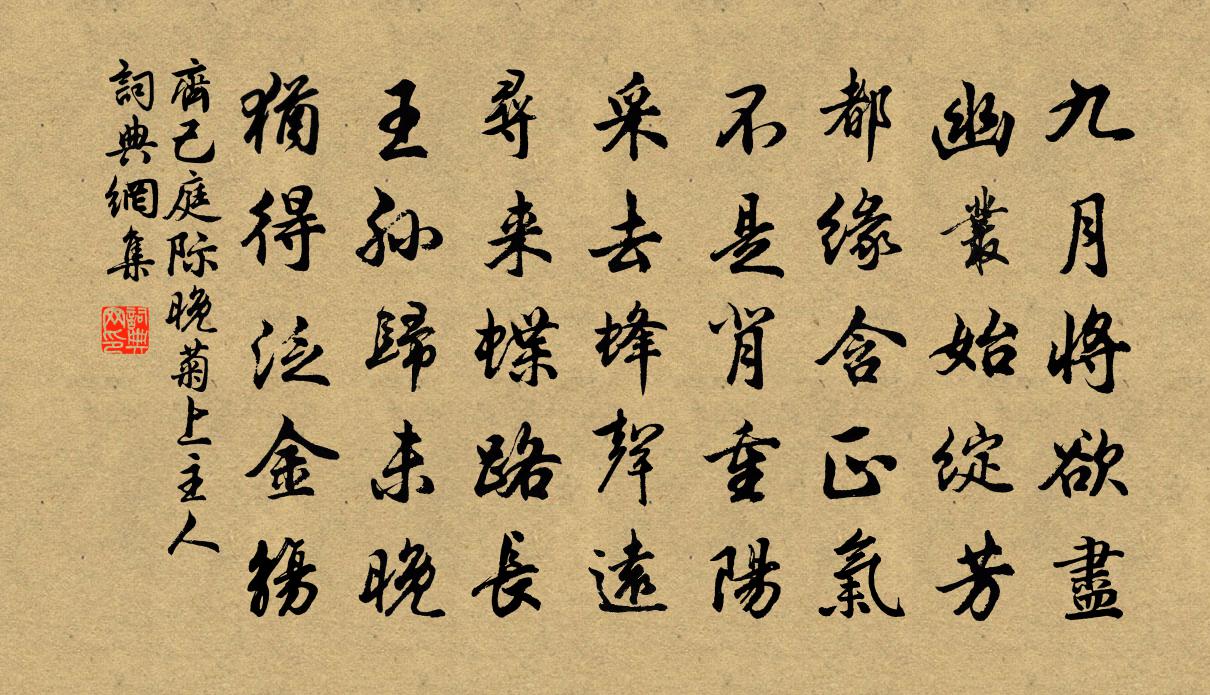 九月將欲盡
幽叢始綻芳
都緣含正氣
不是背重陽
采去蜂聲遠
尋来蝶路長
王孫歸未晚
猶得泛金觴
齊己庭際晚菊上主人
詞典網集
詞典网印